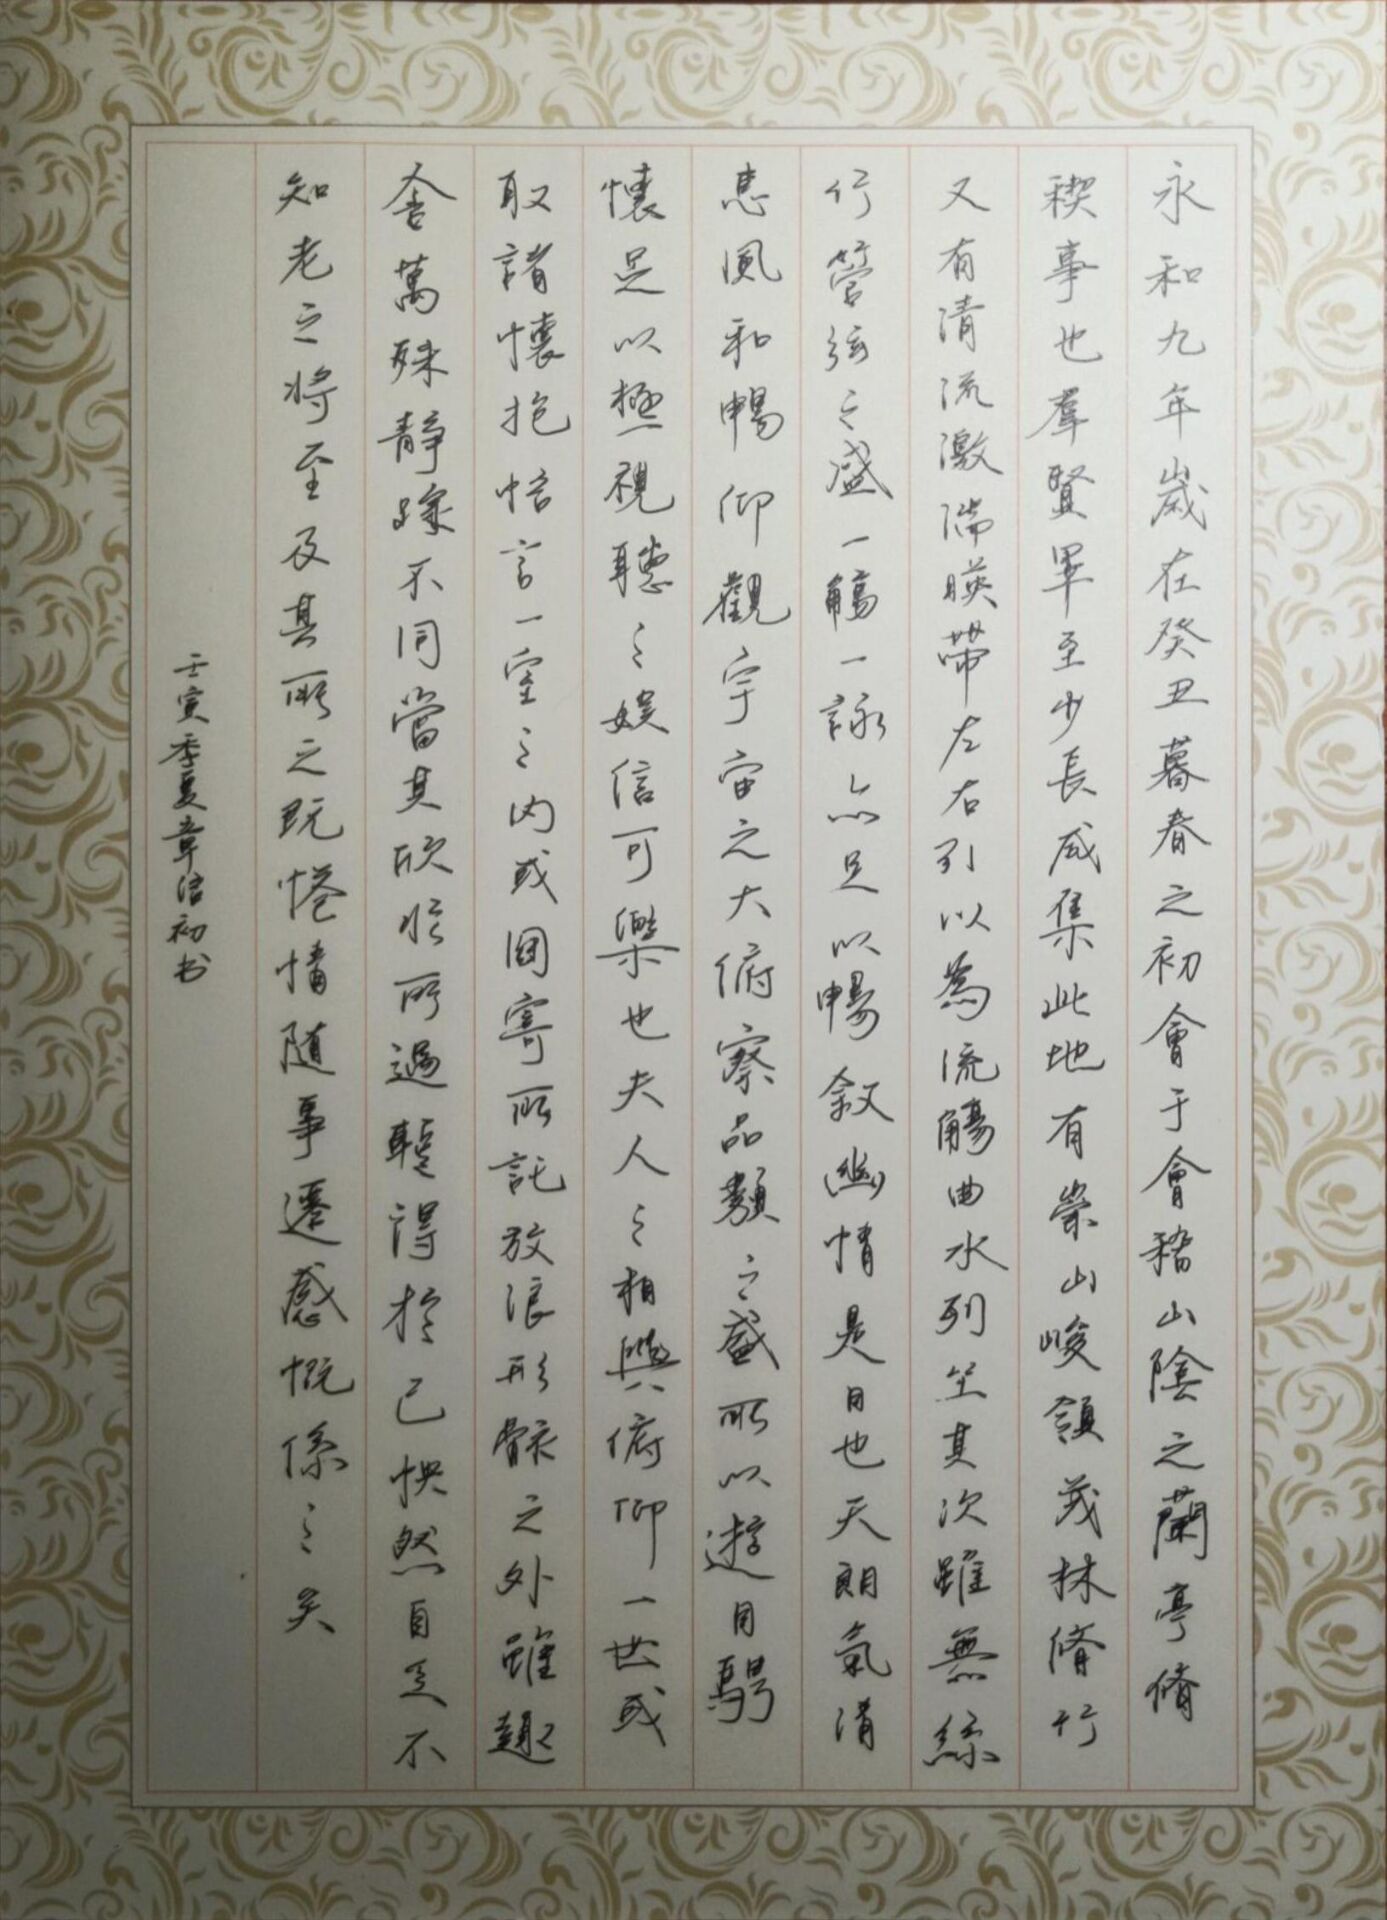 永和九年歲在癸丑暮春之初會于會稽山陰之蘭亭脩
稧事也羣賢畢至少長咸集此地有崇山峻領茂林脩竹
又有清流激湍暎帶左右引以為流觴曲水列坐其次雖無絲
竹管弦之盛一觴一詠亦足以暢敘幽情是日也天朗氣清
惠風和暢仰觀宇宙之大俯察品類之盛所以遊目騁
懷足以極視聽之娛信可樂也夫人之相與俯仰一世或
取諸懷抱悟言一室之內或因寄所託放浪形骸之外雖趣
舍萬殊靜躁不同當其欣於所遇蹔得於己怏然自足不
知老之將至及其所之既惓情隨事遷感慨係之矣
壬寅季夏章浩初书